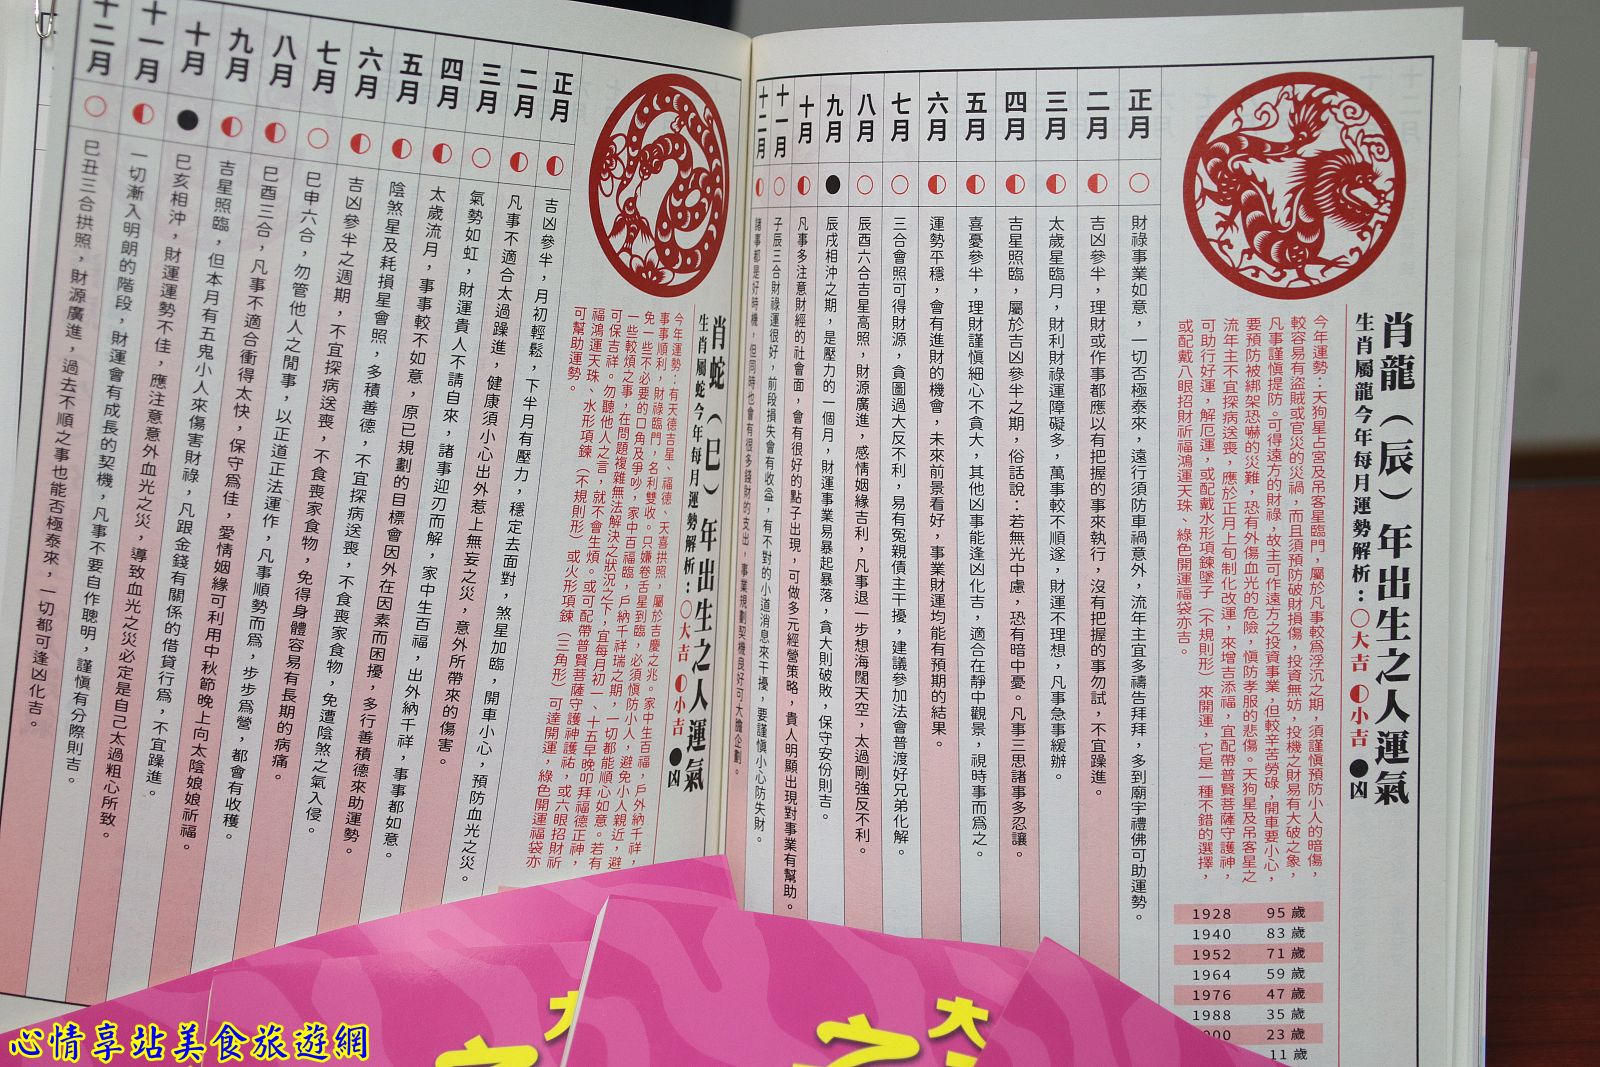 肖龍（辰）年出生之人運氣
生肖屬龍今年每月運勢解析：○大吉 ◐小吉 ●凶
今年運勢：天狗星占宮及吊客星臨門，屬於凡事較為浮沉之期，須謹慎預防小人的暗傷，
較容易有盜賊或官災的災禍，而且須預防破財損傷，投資無妨，投機之財易有大破之象，
凡事謹慎提防。可得遠方的財祿，故主可作遠方之投資事業，但較辛苦勞碌，開車要小心，
要預防被綁架恐嚇的災難，恐有外傷血光的危險，慎防孝服的悲傷。天狗星及吊客星之
流年主不宜探病送喪，應於正月上旬制化改運，來增吉添福，宜配帶普賢菩薩守護神，
可助行好運，解厄運，或配戴水形項鍊墜子（不規則形）來開運，它是一種不錯的選擇，
或配戴八眼招財祈福鴻運天珠、綠色開運福袋亦吉。
1928 95歲
1940 83歲
1952 71歲
1964 59歲
1976 47歲
1988 35歲
23歲
11歲
正月 ○ 財祿事業如意，一切否極泰來，遠行須防車禍意外，流年主宜多禱告拜拜，多到廟宇禮佛可助運勢。
二月 ◐ 吉凶參半，理財或作事都應以有把握的事來執行，沒有把握的事勿試，不宜躁進。
三月 ◐ 太歲星臨月，財利財祿運障礙多，萬事較不順遂，財運不理想，凡事急事緩辦。
四月 ◐ 吉星照臨，屬於吉凶參半之期，俗話說：若無光中慮，恐有暗中憂。凡事三思諸事多忍讓。
五月 ◐ 喜憂參半，理財謹慎細心不貪大，其他凶事能逢凶化吉，適合在靜中觀景，視時事而為之。
六月 ◐ 運勢平穩，會有進財的機會，未來前景看好，事業財運均能有預期的結果。
七月 ○ 三合會照可得財源，貪圖過大反不利，易有冤親債主干擾，建議參加法會普渡好兄弟化解。
八月 ○ 辰酉六合吉星高照，財源廣進，感情姻緣吉利，凡事退一步想海闊天空，太過剛強反不利。
九月 ● 辰戌相沖之期，是壓力的一個月，財運事業易暴起暴落，貪大則破敗，保守安份則吉。
十月 ◐ 凡事多注意財經的社會面，會有很好的點子出現，可做多元經營策略，貴人明顯出現對事業有幫助。
十一月 ○ 子辰三合財祿運很好，前段損失會有收益，有不對的小道消息來干擾，要謹慎小心防失財。
十二月 ◐ 諸事都是好時機，但同時也會有很多錢財的支出，事業規劃契機良好可大膽企劃。
肖蛇（巳）年出生之人運氣
生肖屬蛇今年每月運勢解析：○大吉 ◐小吉 ●凶
今年運勢：有天德吉星、福德、天喜拱照，屬於吉慶之兆。家中生百福，戶外納千祥，
事事順利，財祿臨門，名利雙收。只嫌卷舌星到臨，必須慎防小人，避免小人親近，避
免一些不必要的口角及爭吵，家中百福臨，戶納千祥瑞之期，一切都能順心如意。若有
一些較煩之事，在問題複雜無法解決之狀況之下，宜每月初一、十五早晚叩拜福德正神，
可保吉祥。勿聽他人之言，就不會生煩。或可配帶普賢菩薩守護神護祐，或六眼招財祈
福鴻運天珠、水形項鍊（不規則形）或火形項鍊（三角形）可達開運，綠色開運福袋亦
可幫助運勢。
正月 ◐ 吉凶參半，月初輕鬆，下半月有壓力，穩定去面對，煞星加臨，開車小心，預防血光之災。
二月 ◐ 凡事不適合太過躁進，健康須小心出外惹上無妄之災，意外所帶來的傷害。
三月 ○ 氣勢如虹，財運貴人不請自來，諸事迎刃而解，家中生百福，出外納千祥，事事都如意。
四月 ◐ 太歲流月，事事較不如意，原已規劃的目標會因外在因素而困擾，多行善積德來助運勢。
五月 ◐ 陰煞星及耗損星會照，多積善德，不宜探病送喪，不食喪家食物，免遭陰煞之氣入侵。
六月 ◐ 吉凶參半之週期，不宜探病送喪，不食喪家食物，免得身體容易有長期的病痛。
七月 ○ 巳申六合，勿管他人之閒事，以正道正法運作，凡事順勢而為，步步為營，都會有收穫。
八月 ◐ 巳酉三合，凡事不適合衝得太快，保守為佳，愛情姻緣可利用中秋節晚上向太陰娘娘祈福。
九月 ◐ 吉星照臨，但本月有五鬼小人來傷害財祿，凡跟金錢有關係的借貸行為，不宜躁進。
十月 ● 巳亥相沖，財運運勢不佳，應注意意外血光之災，導致血光之災必定是自己太過粗心所致。
十一月 ◐ 一切漸入明朗的階段，財運會有成長的契機，凡事不要自作聰明，謹慎有分際則吉。
十二月 ○ 巳丑三合拱照，財源廣進，過去不順之事也能否極泰來，一切都可逢凶化吉。
之
大
心情享站美食旅遊網